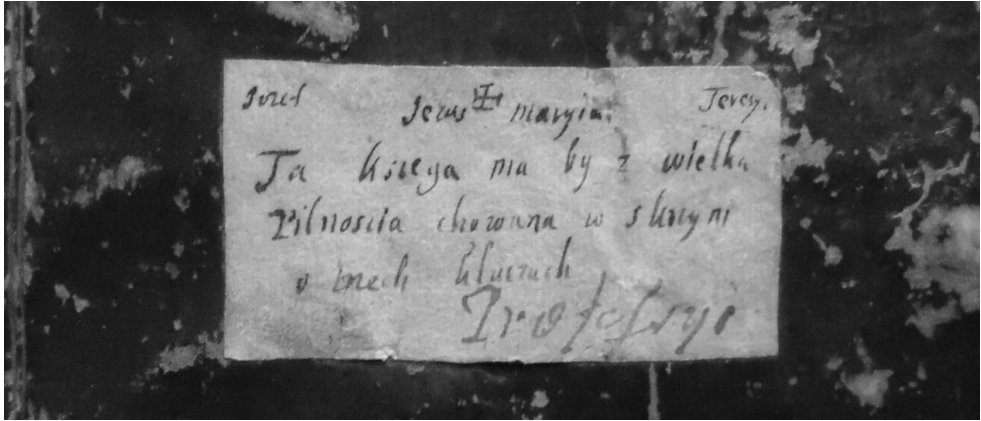 Iozef Jezus maryia. Teresy.
Ta ksiega ma by z wielka
Pilnoscia chowana w skrzyni
o trzech kluczach
Professyi